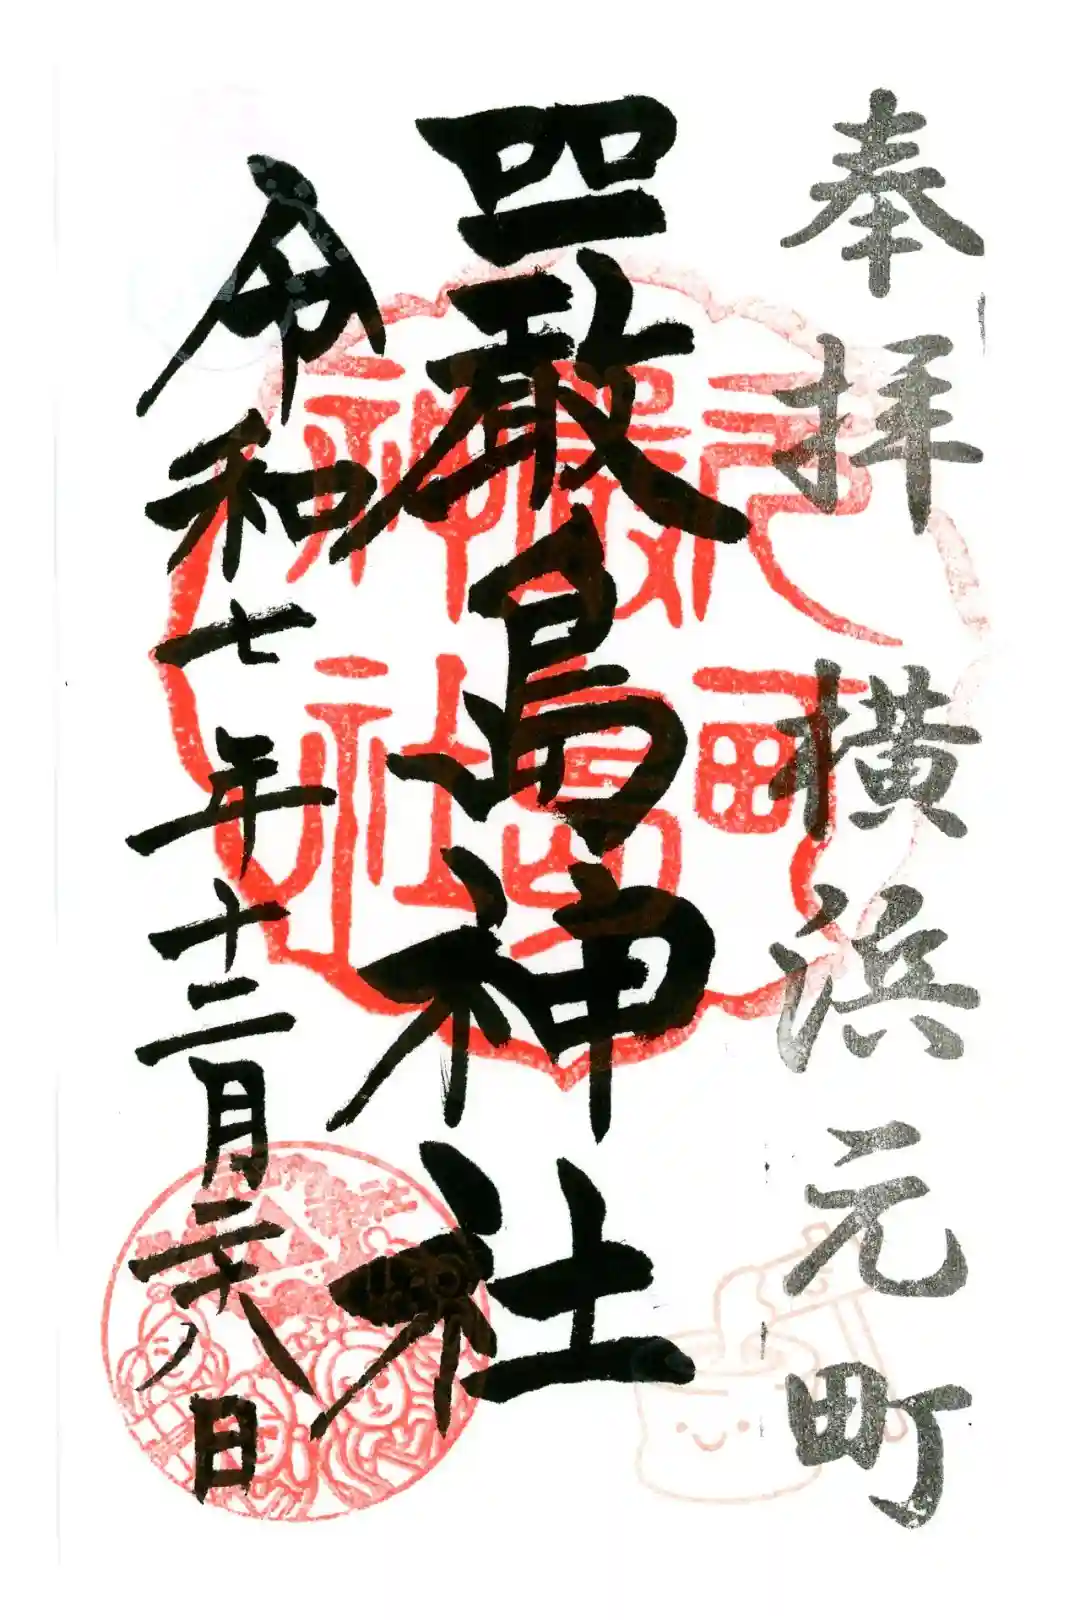 奉拝 横浜元町
嚴島神社
令和七年十二月二十八日
元町
嚴島
神社